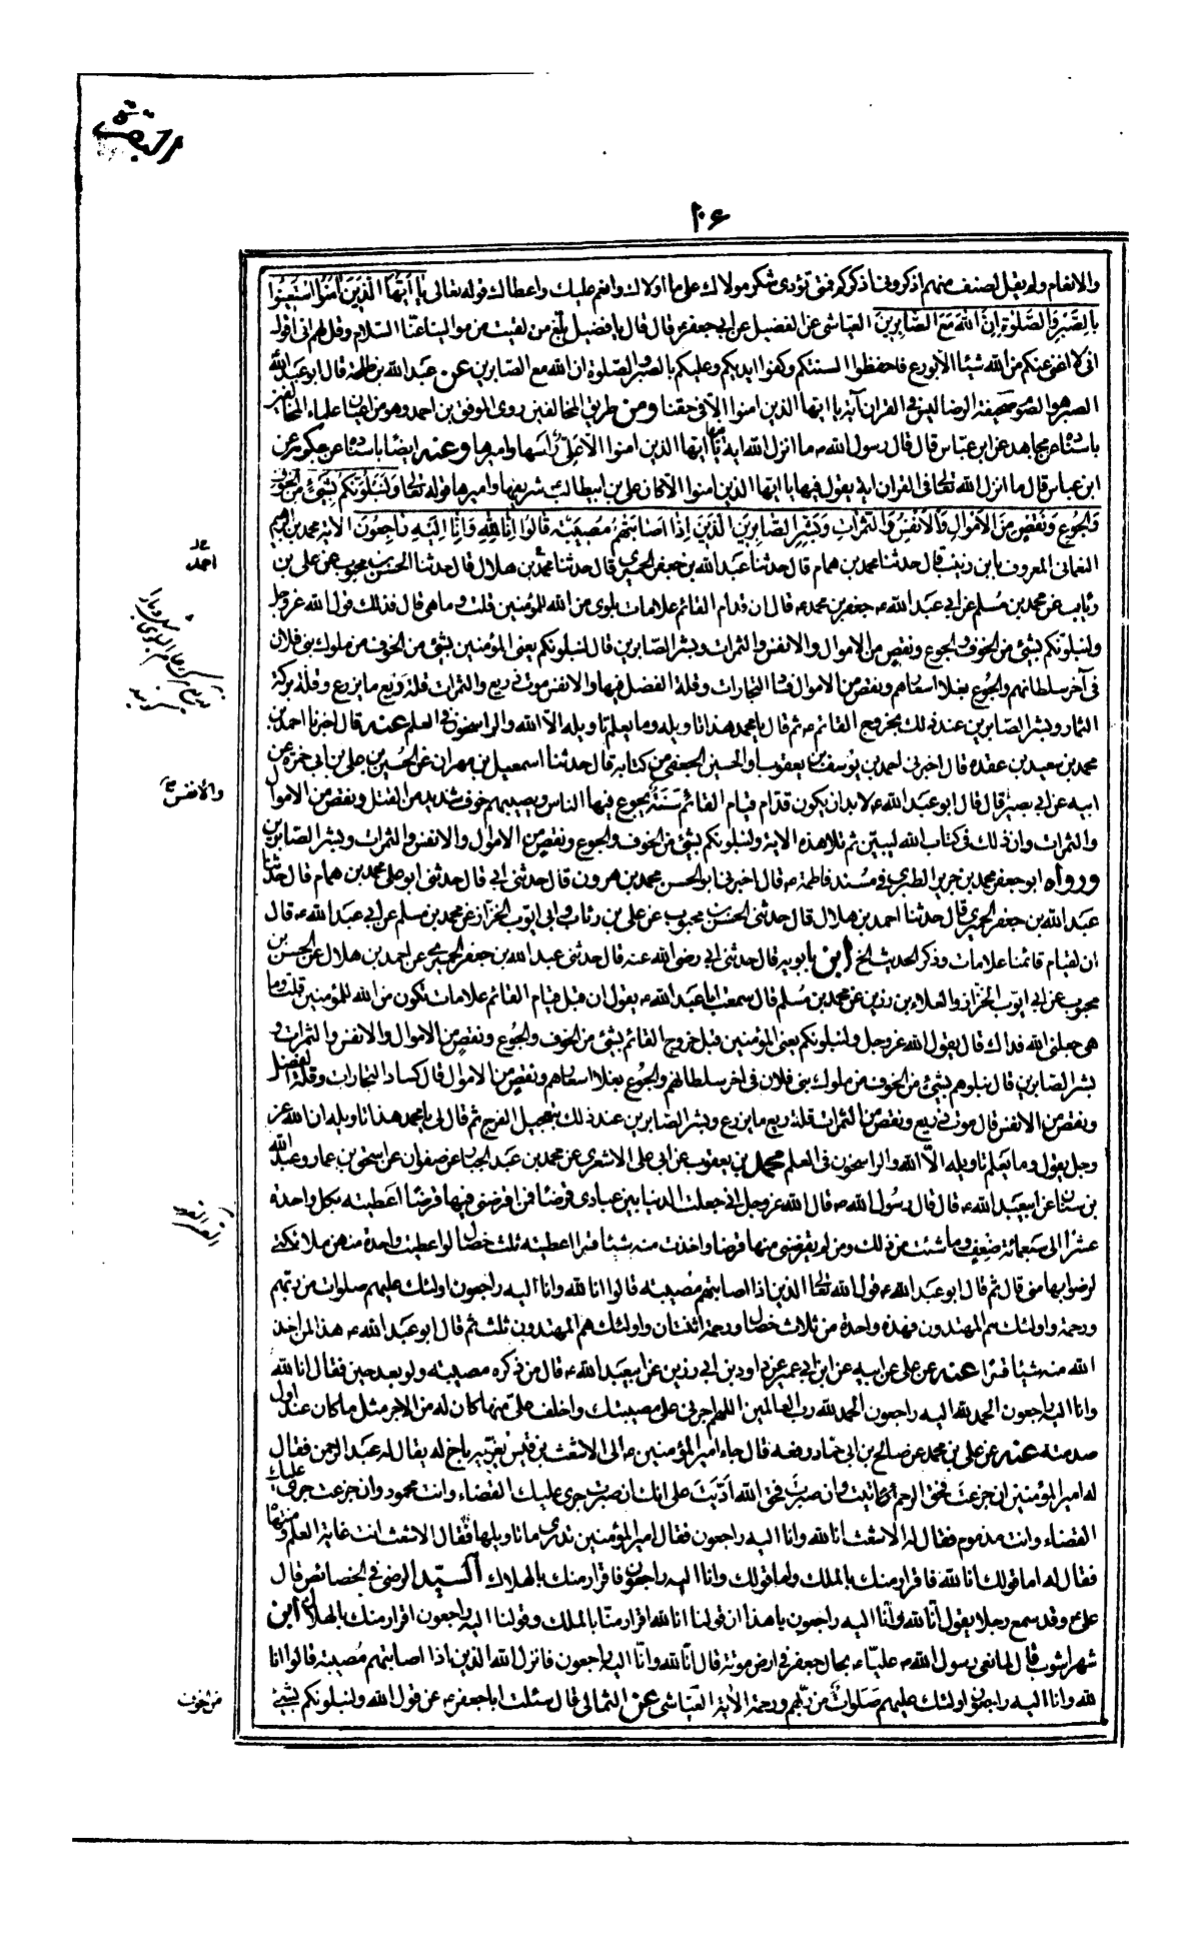 البقرة
١٠٦
والانعام ولم يقبل لصنف منهم اذكروني اذكركم فمتى تؤدى شكر مولاك على ما اولاك وانعم عليك واعطاك قوله تعالى يا ايها الذين آمنوا استعينوا
بالصبر والصلوة ان الله مع الصابرين العياشى عن الفضيل عن ابي جعفر ع قال قال يا فضيل بلغ من لقيت من موالينا عنا السلام وقل لهم انى اقول
انى لا اغنى عنكم من الله شيئا الا بورع فاحفظوا السنتكم وكفوا ايديكم وعليكم بالصبر والصلوة ان الله مع الصابرين عن عبد الله بن طلحة قال ابو عبد الله
الصبر هو الصوم صحيفة الرضا ليس في القران آية يا ايها الذين امنوا الا في حقنا ومن طريق المخالفين روى الموفق بن احمد وهو من اعيان علماء المخالفين
باسناده عن مجاهد عن ابن عباس قال قال رسول الله ص ما انزل الله اية فيها يا ايها الذين امنوا الا على راسها واميرها وعنه ايضا باسناده عن عكرمة عن
ابن عباس قال ما انزل الله تعالى في القران اية يقول فيها يا ايها الذين امنوا الا كان على بن ابيطالب شريفها واميرها قوله تعالى ولنبلونكم بشئ من الخوف
والجوع ونقص من الاموال والانفس والثمرات وبشر الصابرين الذين اذا اصابتهم مصيبة قالوا انا لله وانا اليه راجعون الاية محمد بن ابراهيم
النعمانى المعروف بابن زينب قال حدثنا محمد بن همام قال حدثنا عبد الله بن جعفر الحميرى قال حدثنا محمد بن هلال قال حدثنا الحسن بن محبوب عن على بن
رئاب عن محمد بن مسلم عن ابي عبد الله ع جعفر بن محمد ع قال ان قدام القائم علامات بلوى من الله للمؤمنين قلت وما هي قال فذلك قول الله عز وجل
ولنبلونكم بشئ من الخوف والجوع ونقص من الاموال والانفس والثمرات وبشر الصابرين قال لنبلونكم يعنى المؤمنين بشئ من الخوف من ملوك بنى فلان
في آخر سلطانهم والجوع بغلاء اسعارهم ونقص من الاموال فساد التجارات وقلة الفضل فيها والانفس موت ذريع والثمرات قلة ريع ما يزرع وقلة بركة
الثمار وبشر الصابرين عند ذلك بخروج القائم ع ثم قال يا محمد هذا تاويله وما يعلم تاويله الا الله والراسخون في العلم عنه قال اخبرنا احمد بن
محمد بن سعيد بن عقدة قال اخبرنى احمد بن يوسف بن يعقوب ابو الحسين الجعفى من كتابه قال حدثنا اسمعيل بن مهران عن الحسين بن على بن ابي حمزة عن
ابيه عن ابي بصير قال قال ابو عبد الله ع لابد ان يكون قدام قيام القائم سنة يجوع فيها الناس ويصيبهم خوف شديد من القتل ونقص من الاموال
والثمرات وان ذلك في كتاب الله لبين ثم تلا هذه الاية ولنبلونكم بشئ من الخوف والجوع ونقص من الاموال والانفس والثمرات وبشر الصابرين
ورواه ابو جعفر محمد بن جرير الطبرى في مسند فاطمة ع قال اخبرنى ابو الحسن محمد بن هرون قال حدثنى ابى قال حدثنى ابو على محمد بن همام قال حدثنا
عبد الله بن جعفر الحميرى قال حدثنا احمد بن هلال قال حدثنى الحسن بن محبوب عن على بن رئاب وابى ايوب الخزاز عن محمد بن مسلم عن ابي عبد الله ع قال
ان لقيام قائمنا علامات وذكر الحديث الخ ابن بابويه قال حدثنى ابى رضى الله عنه قال حدثنى عبد الله بن جعفر الحميرى عن احمد بن هلال عن الحسن بن
محبوب عن ابي ايوب الخزاز والعلاء بن رزين عن محمد بن مسلم قال سمعت ابا عبد الله ع يقول ان قبل قيام القائم علامات تكون من الله للمؤمنين قلت وما
هي جعلنى الله فداك قال يقول الله عز وجل ولنبلونكم يعنى المؤمنين قبل خروج القائم بشئ من الخوف والجوع ونقص من الاموال والانفس والثمرات و
بشر الصابرين قال نبلوهم بشئ من الخوف من ملوك بنى فلان في اخر سلطانهم والجوع بغلاء اسعارهم ونقص من الاموال قال كساد التجارات وقلة الفضل
ونقص من الانفس قال موت ذريع ونقص من الثمرات قلة ريع ما يزرع وبشر الصابرين عند ذلك بتعجيل الفرج ثم قال لى يا محمد هذا تاويله ان الله عز
وجل يقول وما يعلم تاويله الا الله والراسخون في العلم محمد بن يعقوب عن ابي على الاشعرى عن محمد بن عبد الجبار عن صفوان عن اسحق بن عمار وعبد الله
بن سنان عن ابيعبد الله ع قال قال رسول الله ص قال الله عز وجل انى جعلت الدنيا بين عبادى قرضا فمن اقرضنى فيها قرضا اعطيته بكل واحدة
عشرا الى سبعمائة ضعف وما شئت من ذلك ومن لم يقرضنى منها قرضا واخذت منه شيئا قسرا اعطيته ثلث خصال لو اعطيت واحدة منهن ملائكتى
لرضوا بها منى قال ثم قال ابو عبد الله ع قول الله تعالى الذين اذا اصابتهم مصيبة قالوا انا لله وانا اليه راجعون اولئك عليهم صلوات من ربهم
ورحمة واولئك هم المهتدون فهذه واحدة من ثلاث خصال ورحمة اثنتان واولئك هم المهتدون ثلث ثم قال ابو عبد الله ع هذا لمن اخذ
الله منه شيئا قسرا عنه عن على عن ابيه عن ابن ابي عمير عن داود بن ابي رزين عن ابيعبد الله ع قال من ذكره مصيبة ولو بعد حين فقال انا لله
وانا اليه راجعون الحمد لله اليه راجعون الحمد لله رب العالمين اللهم اجرنى على مصيبتك واخلف على منها كان له من الاجر مثل ما كان عند اول
صدمته عنه عن على بن محمد عن صالح بن ابي حماد رفعه قال جاء امير المؤمنين ع الى الاشعث بن قيس يعزيه باخ له يقال له عبد الرحمن فقال
له امير المؤمنين ان جزعت فحق الرحم اتيت وان صبرت فحق الله اديت على انك ان صبرت جرى عليك القضاء وانت محمود وان جزعت جرى عليك
القضاء وانت مذموم فقال له الاشعث انا لله وانا اليه راجعون فقال امير المؤمنين تدرى ما تاويلها فقال الاشعث انت غاية العلم ومنتهاه
فقال له اما قولك انا لله فاقرار منك بالملك واما قولك وانا اليه راجعون فاقرار منك بالهلاك السيد الرضى في الخصائص قال
على ع وقد سمع رجلا يقول انا لله وانا اليه راجعون يا هذا ان قولنا انا لله اقرار منا بالملك وقولنا اليه راجعون اقرار منك بالهلاك ابن
شهراشوب قال لما نعى رسول الله ص عليا ع بحال جعفر في ارض موتة قال انا لله وانا اليه راجعون فانزل الله الذين اذا اصابتهم مصيبة قالوا انا
لله وانا اليه راجعون اولئك عليهم صلوات من ربهم ورحمة الاية العياشى عن الثمالى قال سئلت ابا جعفر ع عن قول الله ولنبلونكم بشئ
احمد
والانفس
من الخوف